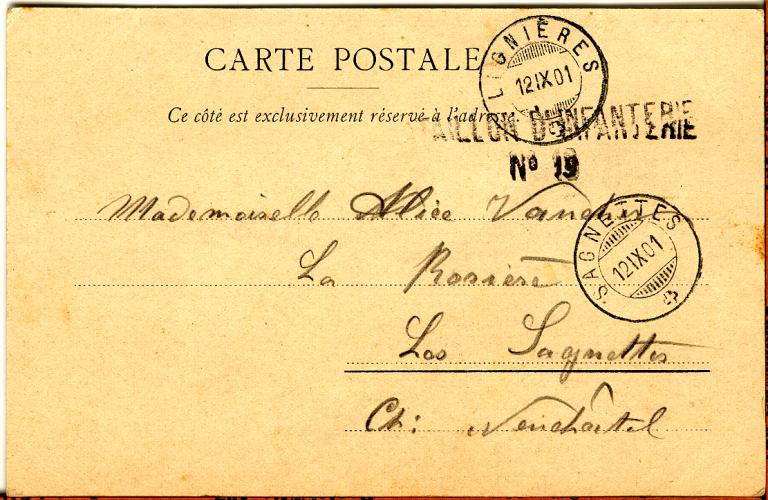 CARTE POSTALE
Ce côté est exclusivement réservé à l'adresse.
LIGNIÈRES
12 IX 01
AILLON D'INFANTERIE
No 19
Mademoiselle Alice
La Rosière
SAGNETTES
12 IX 01
Les Sagnettes
Ct: Neuchâtel